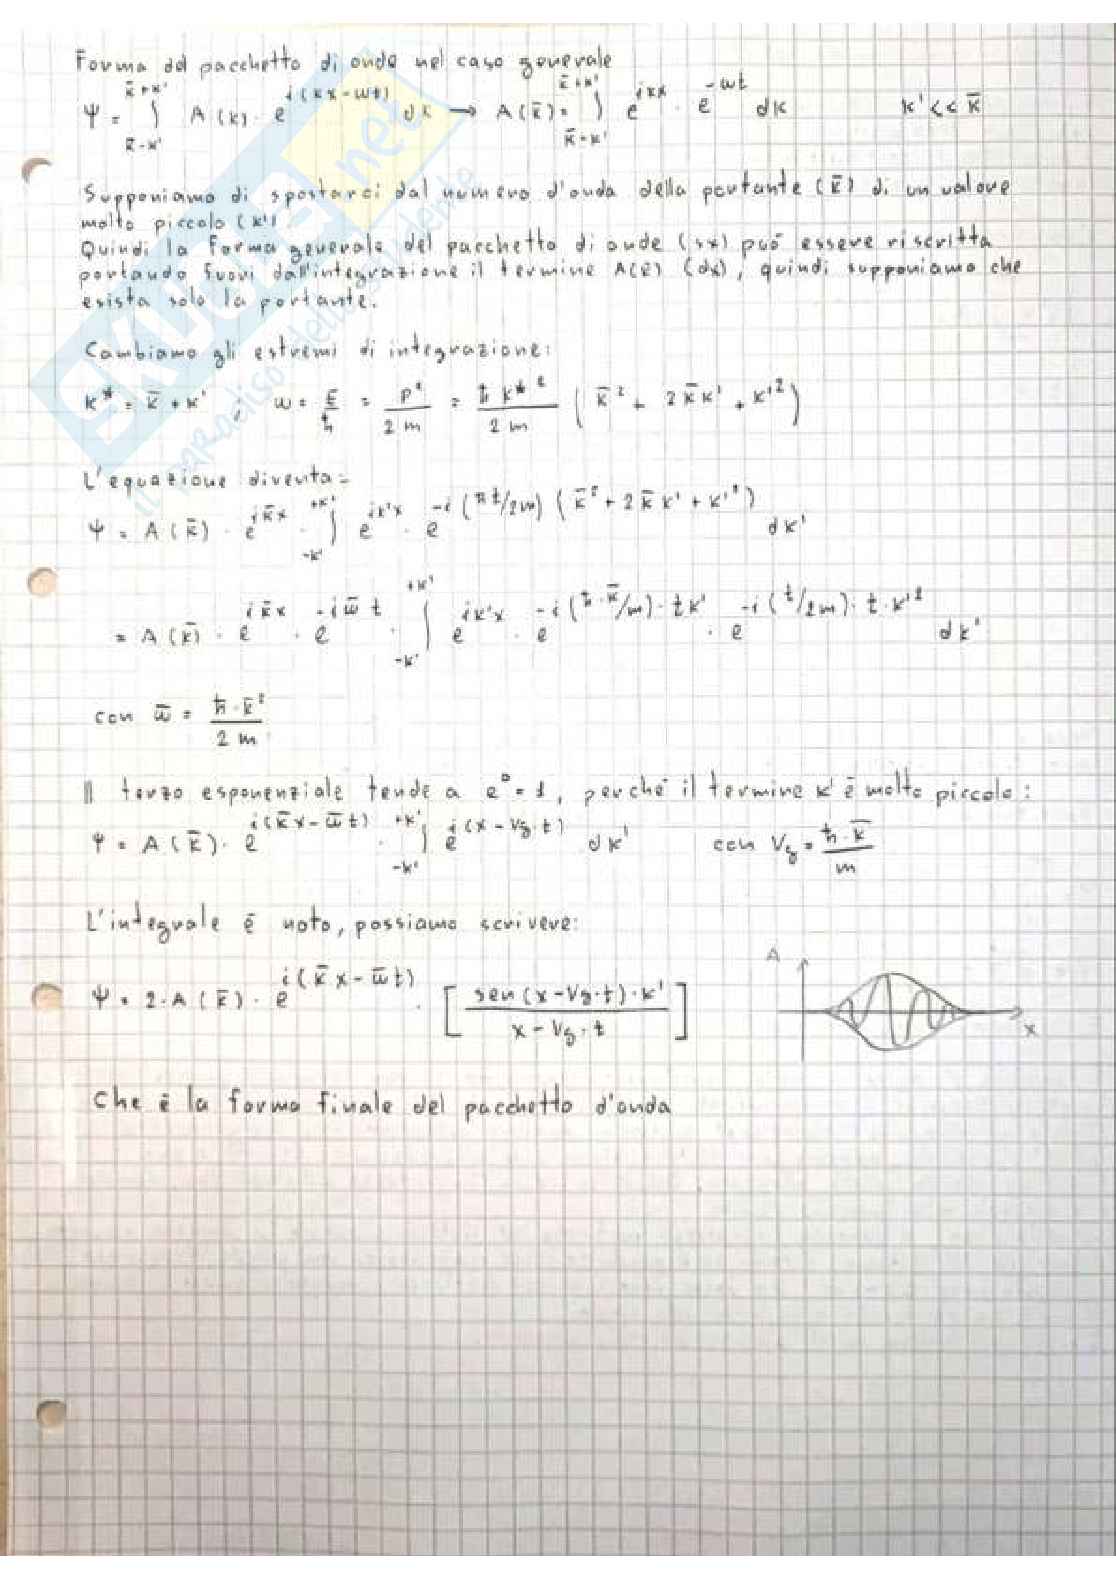 Forma del pacchetto di onde nel caso generale
Ψ = ∫_{k̄-k'}^{k̄+k'} A(k) · e^{i(kx-ωt)} dk → A(k̄) = ∫_{k̄-k'}^{k̄+k'} e^{ikx} · e^{-ωt} dk k' << k̄
Supponiamo di spostarci dal numero d'onda della portante (k̄) di un valore
molto piccolo (k')
Quindi la forma generale del pacchetto di onde (sx) può essere riscritta
portando fuori dall'integrazione il termine A(k̄) (dx), quindi supponiamo che
esista solo la portante.
Cambiamo gli estremi di integrazione:
k* = k̄ + k' ; ω = E/ħ = p²/2m = ħ k*²/2m (k̄² + 2k̄k' + k'²)
L'equazione diventa =
Ψ = A(k̄) · e^{ik̄x} · ∫_{-k'}^{+k'} e^{ik'x} · e^{-i(ħt/2m)(k̄² + 2k̄k' + k'²)} dk'
= A(k̄) · e^{ik̄x} · e^{-iω̄t} · ∫_{-k'}^{+k'} e^{ik'x} · e^{-i(ħ·k̄/m)·tk'} · e^{-i(ħ/2m)·t·k'²} dk'
con ω̄ = ħ·k̄²/2m
Il terzo esponenziale tende a e⁰ = 1, perché il termine k' è molto piccolo:
Ψ = A(k̄) · e^{i(k̄x-ω̄t)} · ∫_{-k'}^{+k'} e^{i(x-Vg·t)} dk' con Vg = ħ·k̄/m
L'integrale è noto, possiamo scrivere:
Ψ = 2·A(k̄) · e^{i(k̄x-ω̄t)} · [sen(x-Vg·t)·k' / x-Vg·t]
A
x
Che è la forma finale del pacchetto d'onda
SKUOLA.net
il paradiso dello studente